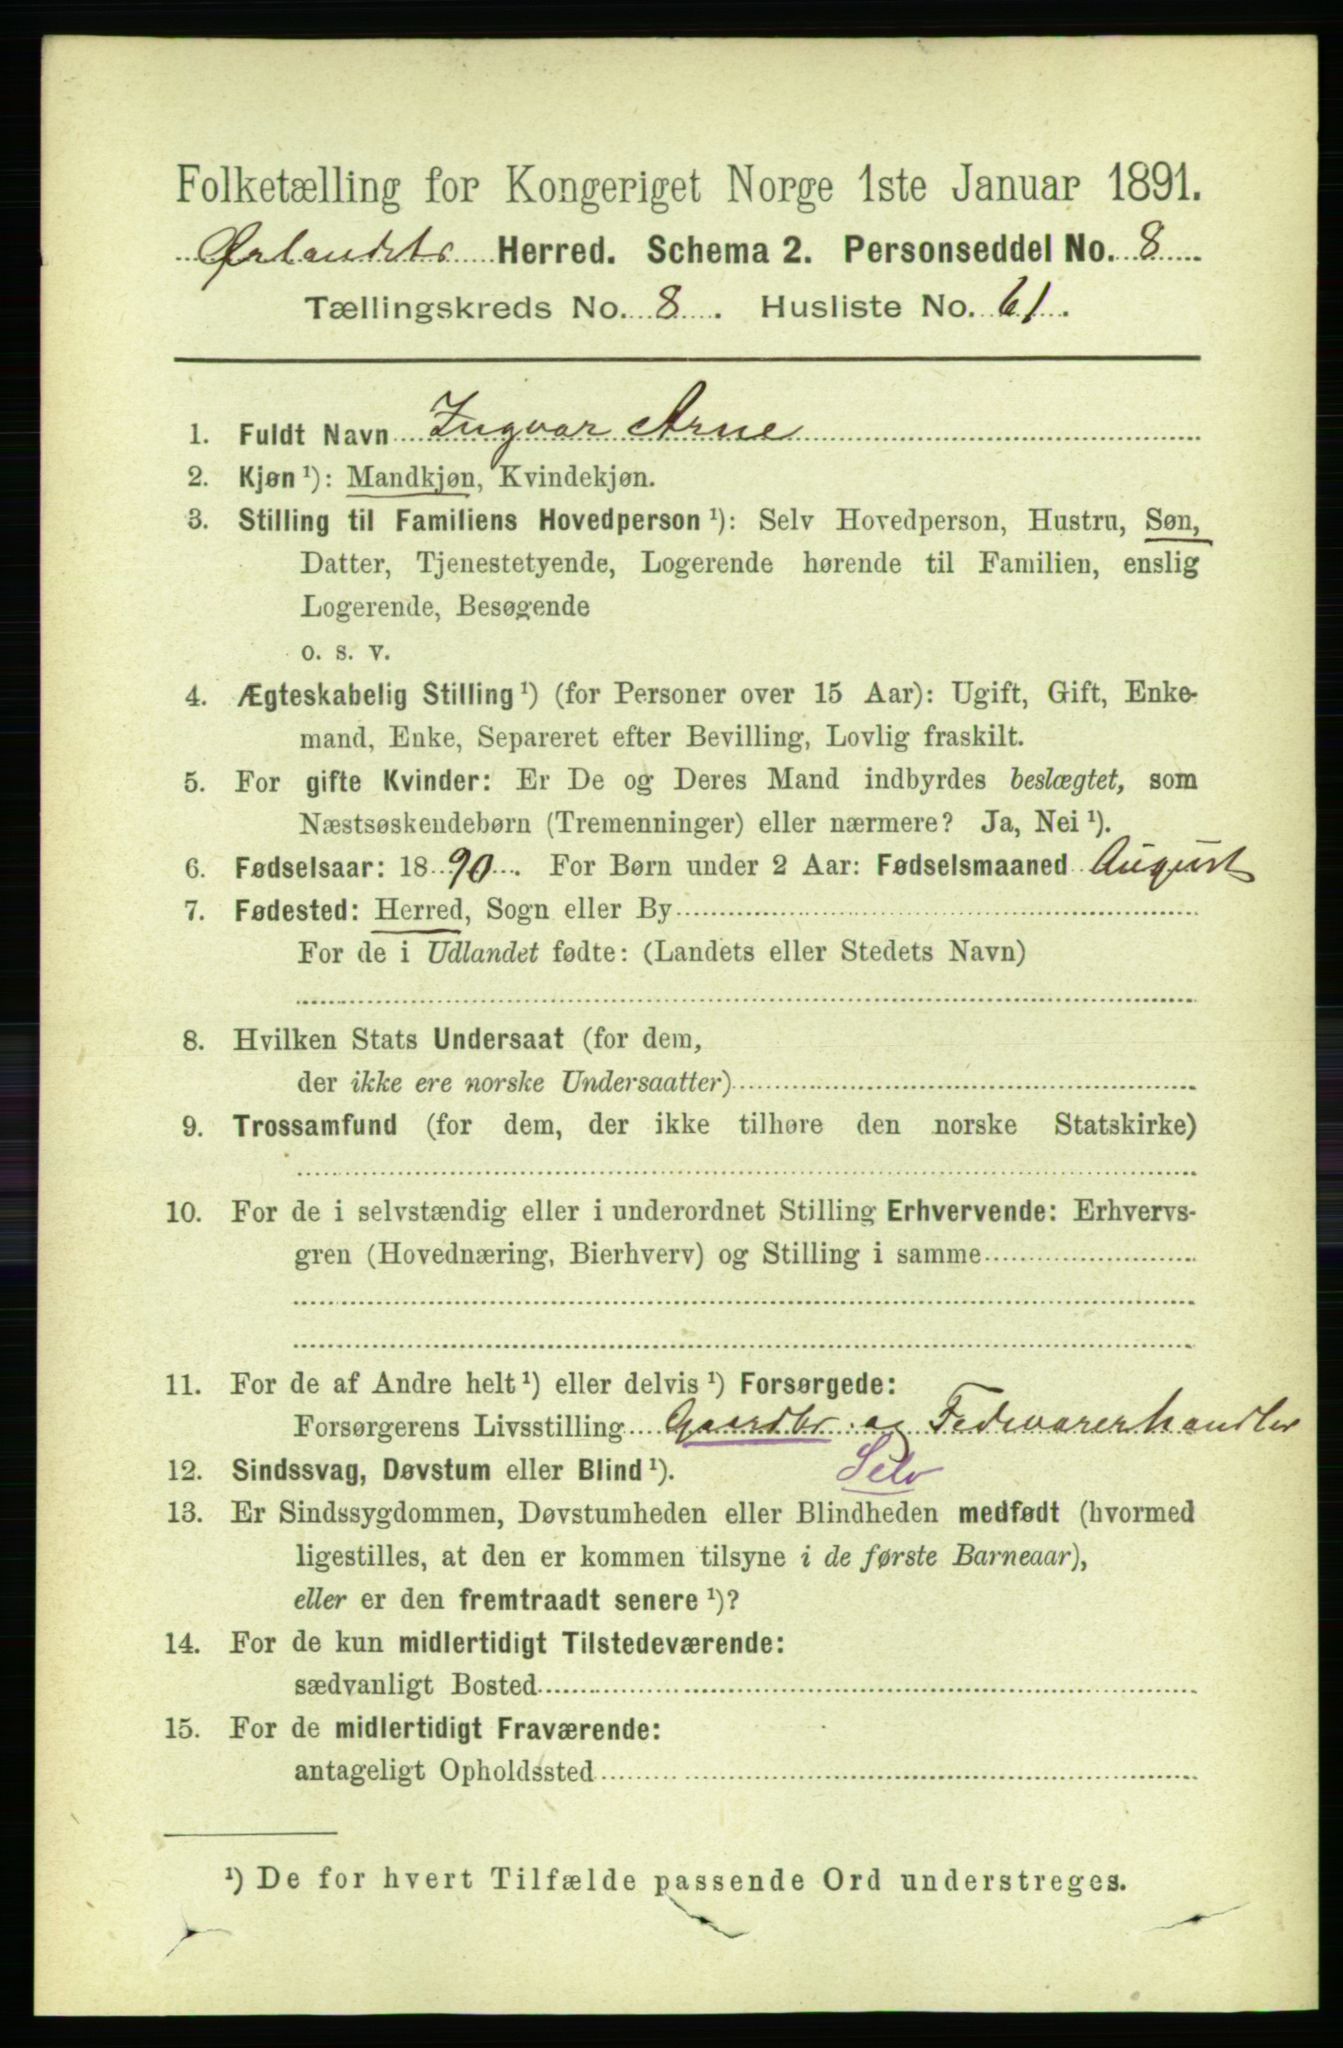 Folketælling for Kongeriget Norge 1ste Januar 1891.
Ørlandets Herred. Schema 2. Personseddel No. 8
Tællingskreds No. 8. Husliste No. 61.
1. Fuldt Navn Ingvar Arne
2. Kjøn ¹): Mandkjøn, Kvindekjøn.
3. Stilling til Familiens Hovedperson ¹): Selv Hovedperson, Hustru, Søn,
Datter, Tjenestetyende, Logerende hørende til Familien, enslig
Logerende, Besøgende
o. s. v.
4. Ægteskabelig Stilling ¹) (for Personer over 15 Aar): Ugift, Gift, Enke-
mand, Enke, Separeret efter Bevilling, Lovlig fraskilt.
5. For gifte Kvinder: Er De og Deres Mand indbyrdes beslægtet, som
Næstsøskendebørn (Tremenninger) eller nærmere? Ja, Nei ¹).
6. Fødselsaar: 1890. For Børn under 2 Aar: Fødselsmaaned August
7. Fødested: Herred, Sogn eller By
For de i Udlandet fødte: (Landets eller Stedets Navn)
8. Hvilken Stats Undersaat (for dem,
der ikke ere norske Undersaatter)
9. Trossamfund (for dem, der ikke tilhøre den norske Statskirke)
10. For de i selvstændig eller i underordnet Stilling Erhvervende: Erhvervs-
gren (Hovednæring, Bierhverv) og Stilling i samme
11. For de af Andre helt ¹) eller delvis ¹) Forsørgede:
Forsørgerens Livsstilling Gaardbr. og Fedevarerhandler
12. Sindssvag, Døvstum eller Blind ¹). Selv
13. Er Sindssygdommen, Døvstumheden eller Blindheden medfødt (hvormed
ligestilles, at den er kommen tilsyne i de første Barneaar),
eller er den fremtraadt senere ¹)?
14. For de kun midlertidigt Tilstedeværende:
sædvanligt Bosted
15. For de midlertidigt Fraværende:
antageligt Opholdssted
¹) De for hvert Tilfælde passende Ord understreges.